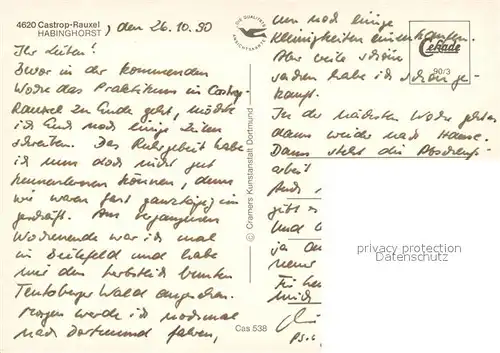 4620 Castrop-Rauxel, den 26.10.90
HABINGHORST
Ihr Lieben!
Zwar in der kommenden
Woche das Praktikum in Castrop-
Rauxel zu Ende geht, möchte
ich Euch noch einige Zeilen
schreiben. Das Ruhrgebiet habe
ich nun doch nicht gut
kennenlernen können, denn
wir waren fast ganztägig im
geschäft. Am vergangenen
Wochenende war ich mal
in Bielefeld und habe
mir den herbstlich bunten
Teutoburger Wald angesehen.
Morgen werde ich nochmal
nach Dortmund fahren,
DIE QUALITÄTS
ANSICHTSKARTE
© Cramers Kunstanstalt Dortmund
Cas 538
um noch einige
Kleinigkeiten einzukaufen.
Aber viele schöne
sachen habe ich schon ge-
kauft.
In der nächsten Woche gehts
dann wieder nach Hause.
Dann steht die
arbeit
Auch
gibt es
und
ja
Für
mich
Cekade
90/3
privacy protection
www.delcampe.net